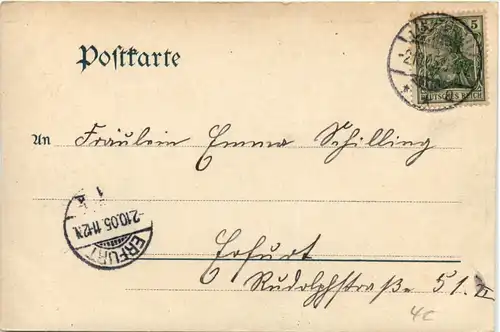 Postkarte
5
DEUTSCHES REICH
An Fräulein Emma Schilling
2.10.05.11-12N.
ERFURT
1
Erfurt
Rudolphstraße 51. II
4C